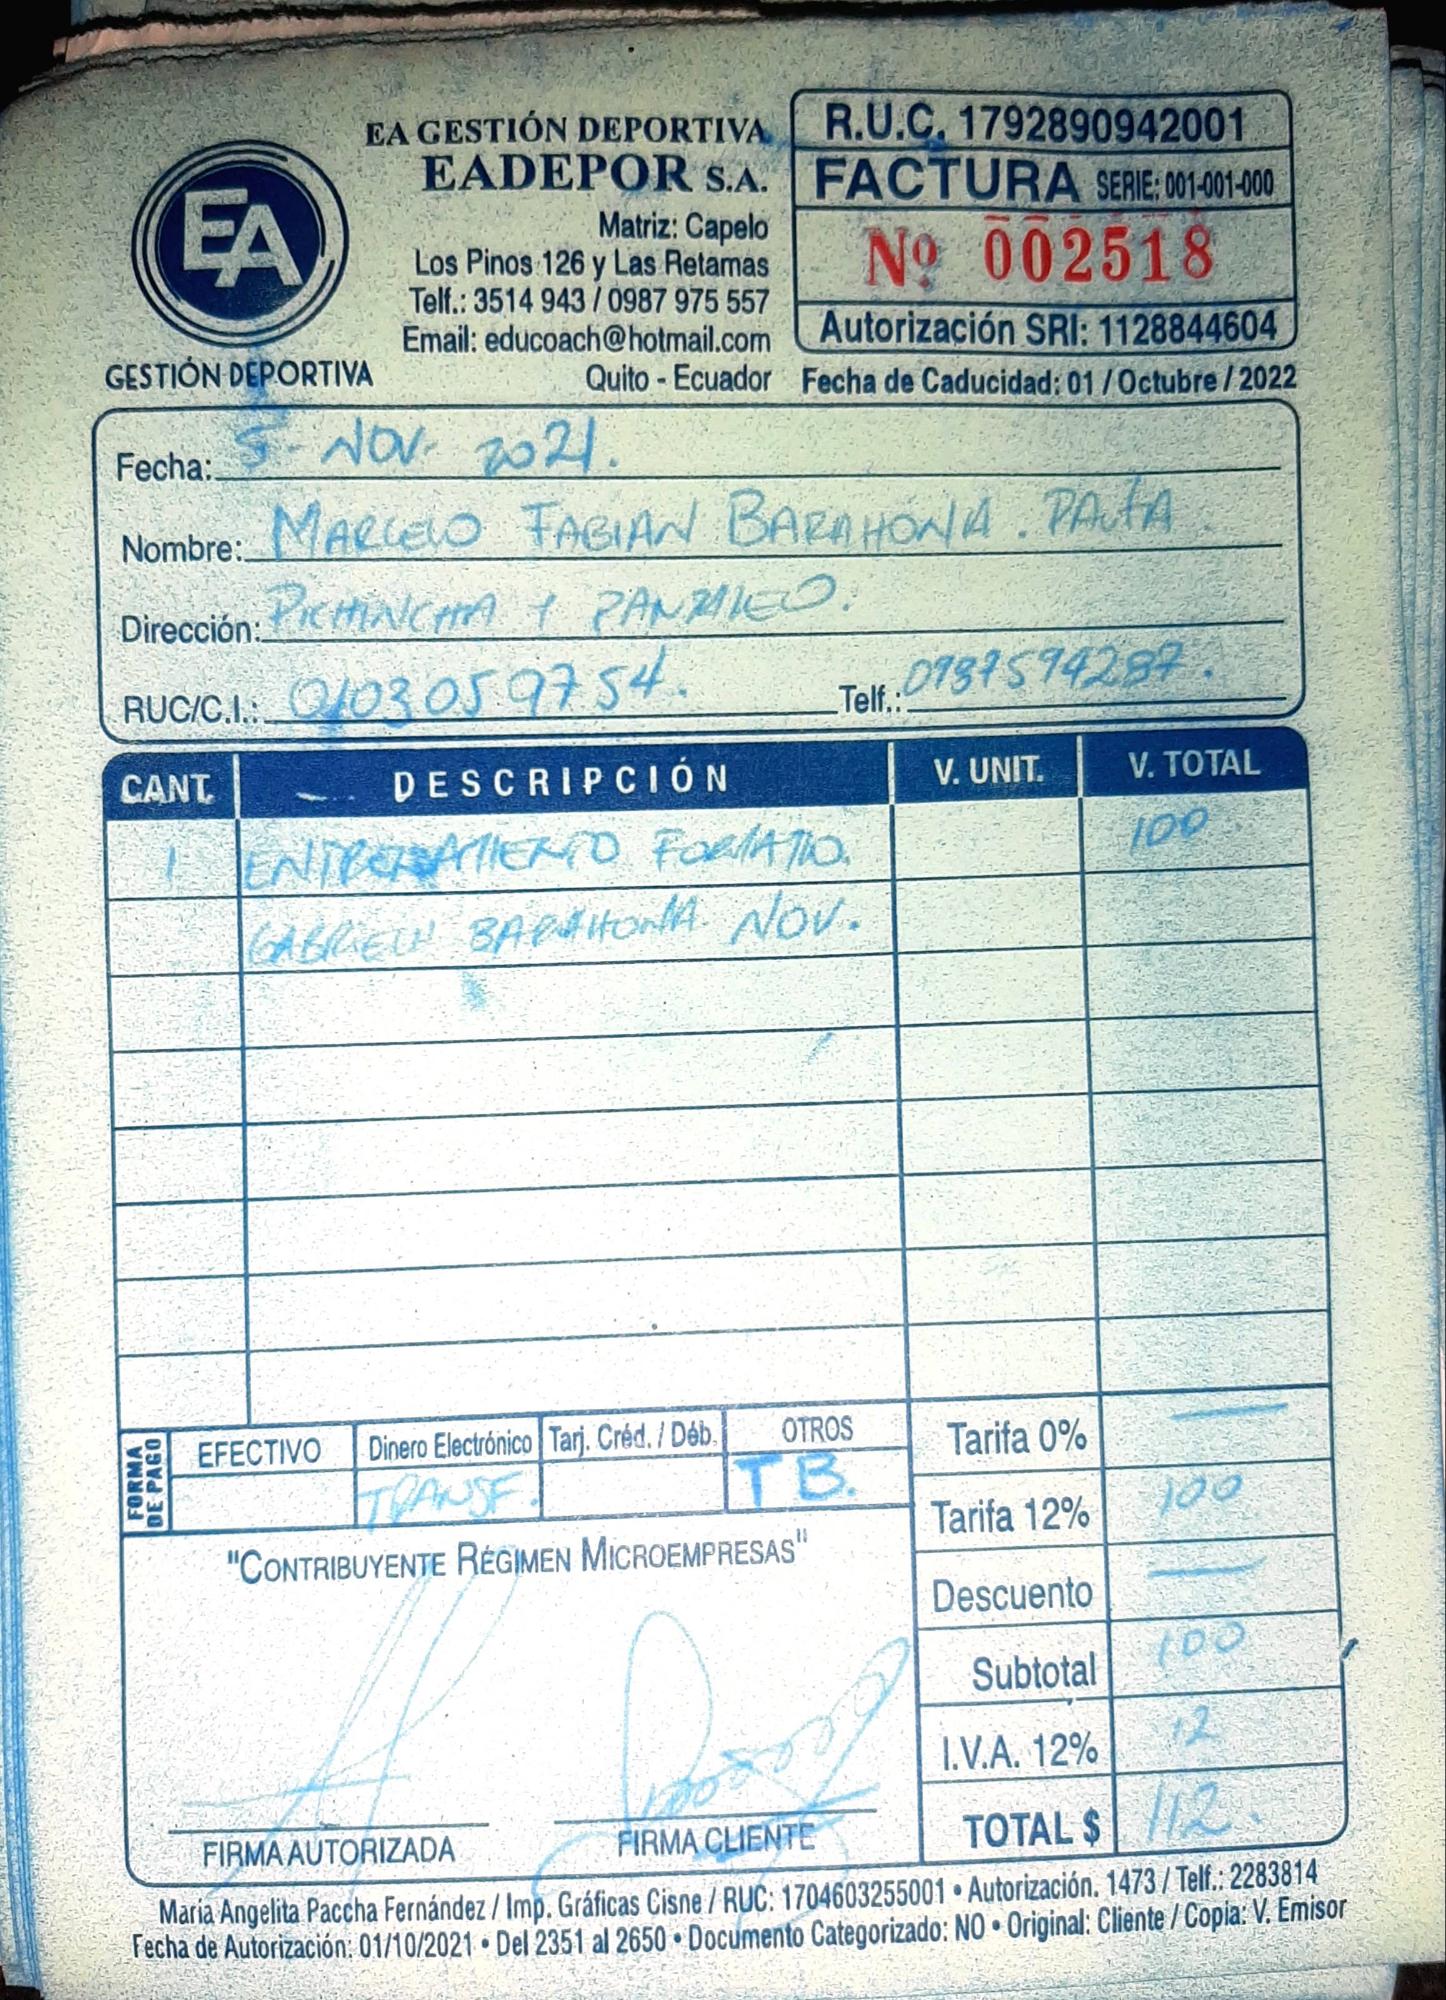 EA
GESTIÓN DEPORTIVA
EA GESTIÓN DEPORTIVA
EADEPOR S.A.
Matriz: Capelo
Los Pinos 126 y Las Retamas
Telf.: 3514 943 / 0987 975 557
Email: educoach@hotmail.com
Quito - Ecuador
R.U.C. 1792890942001
FACTURA SERIE: 001-001-000
Nº 002518
Autorización SRI: 1128844604
Fecha de Caducidad: 01 / Octubre / 2022
Fecha: 5 - NOV - 2021.
Nombre: MARCELO FABIAN BARAHONA. PAUTA.
Dirección: PICHINCHA Y PANZALEO.
RUC/C.I.: 0103059754. Telf.: 0987594287.
CANT. DESCRIPCIÓN V. UNIT. V. TOTAL
1 ENTRENAMIENTO 100
BARAHONA NOV.
FORMA DE PAGO
EFECTIVO Dinero Electrónico Tarj. Créd. / Déb. OTROS
TRANSF. TB.
"CONTRIBUYENTE RÉGIMEN MICROEMPRESAS"
Tarifa 0% —
Tarifa 12% 100
Descuento —
Subtotal 100
I.V.A. 12% 12
TOTAL $ 112.
FIRMA AUTORIZADA FIRMA CLIENTE
María Angelita Paccha Fernández / Imp. Gráficas Cisne / RUC: 1704603255001 • Autorización. 1473 / Telf.: 2283814
Fecha de Autorización: 01/10/2021 • Del 2351 al 2650 • Documento Categorizado: NO • Original: Cliente / Copia: V. Emisor